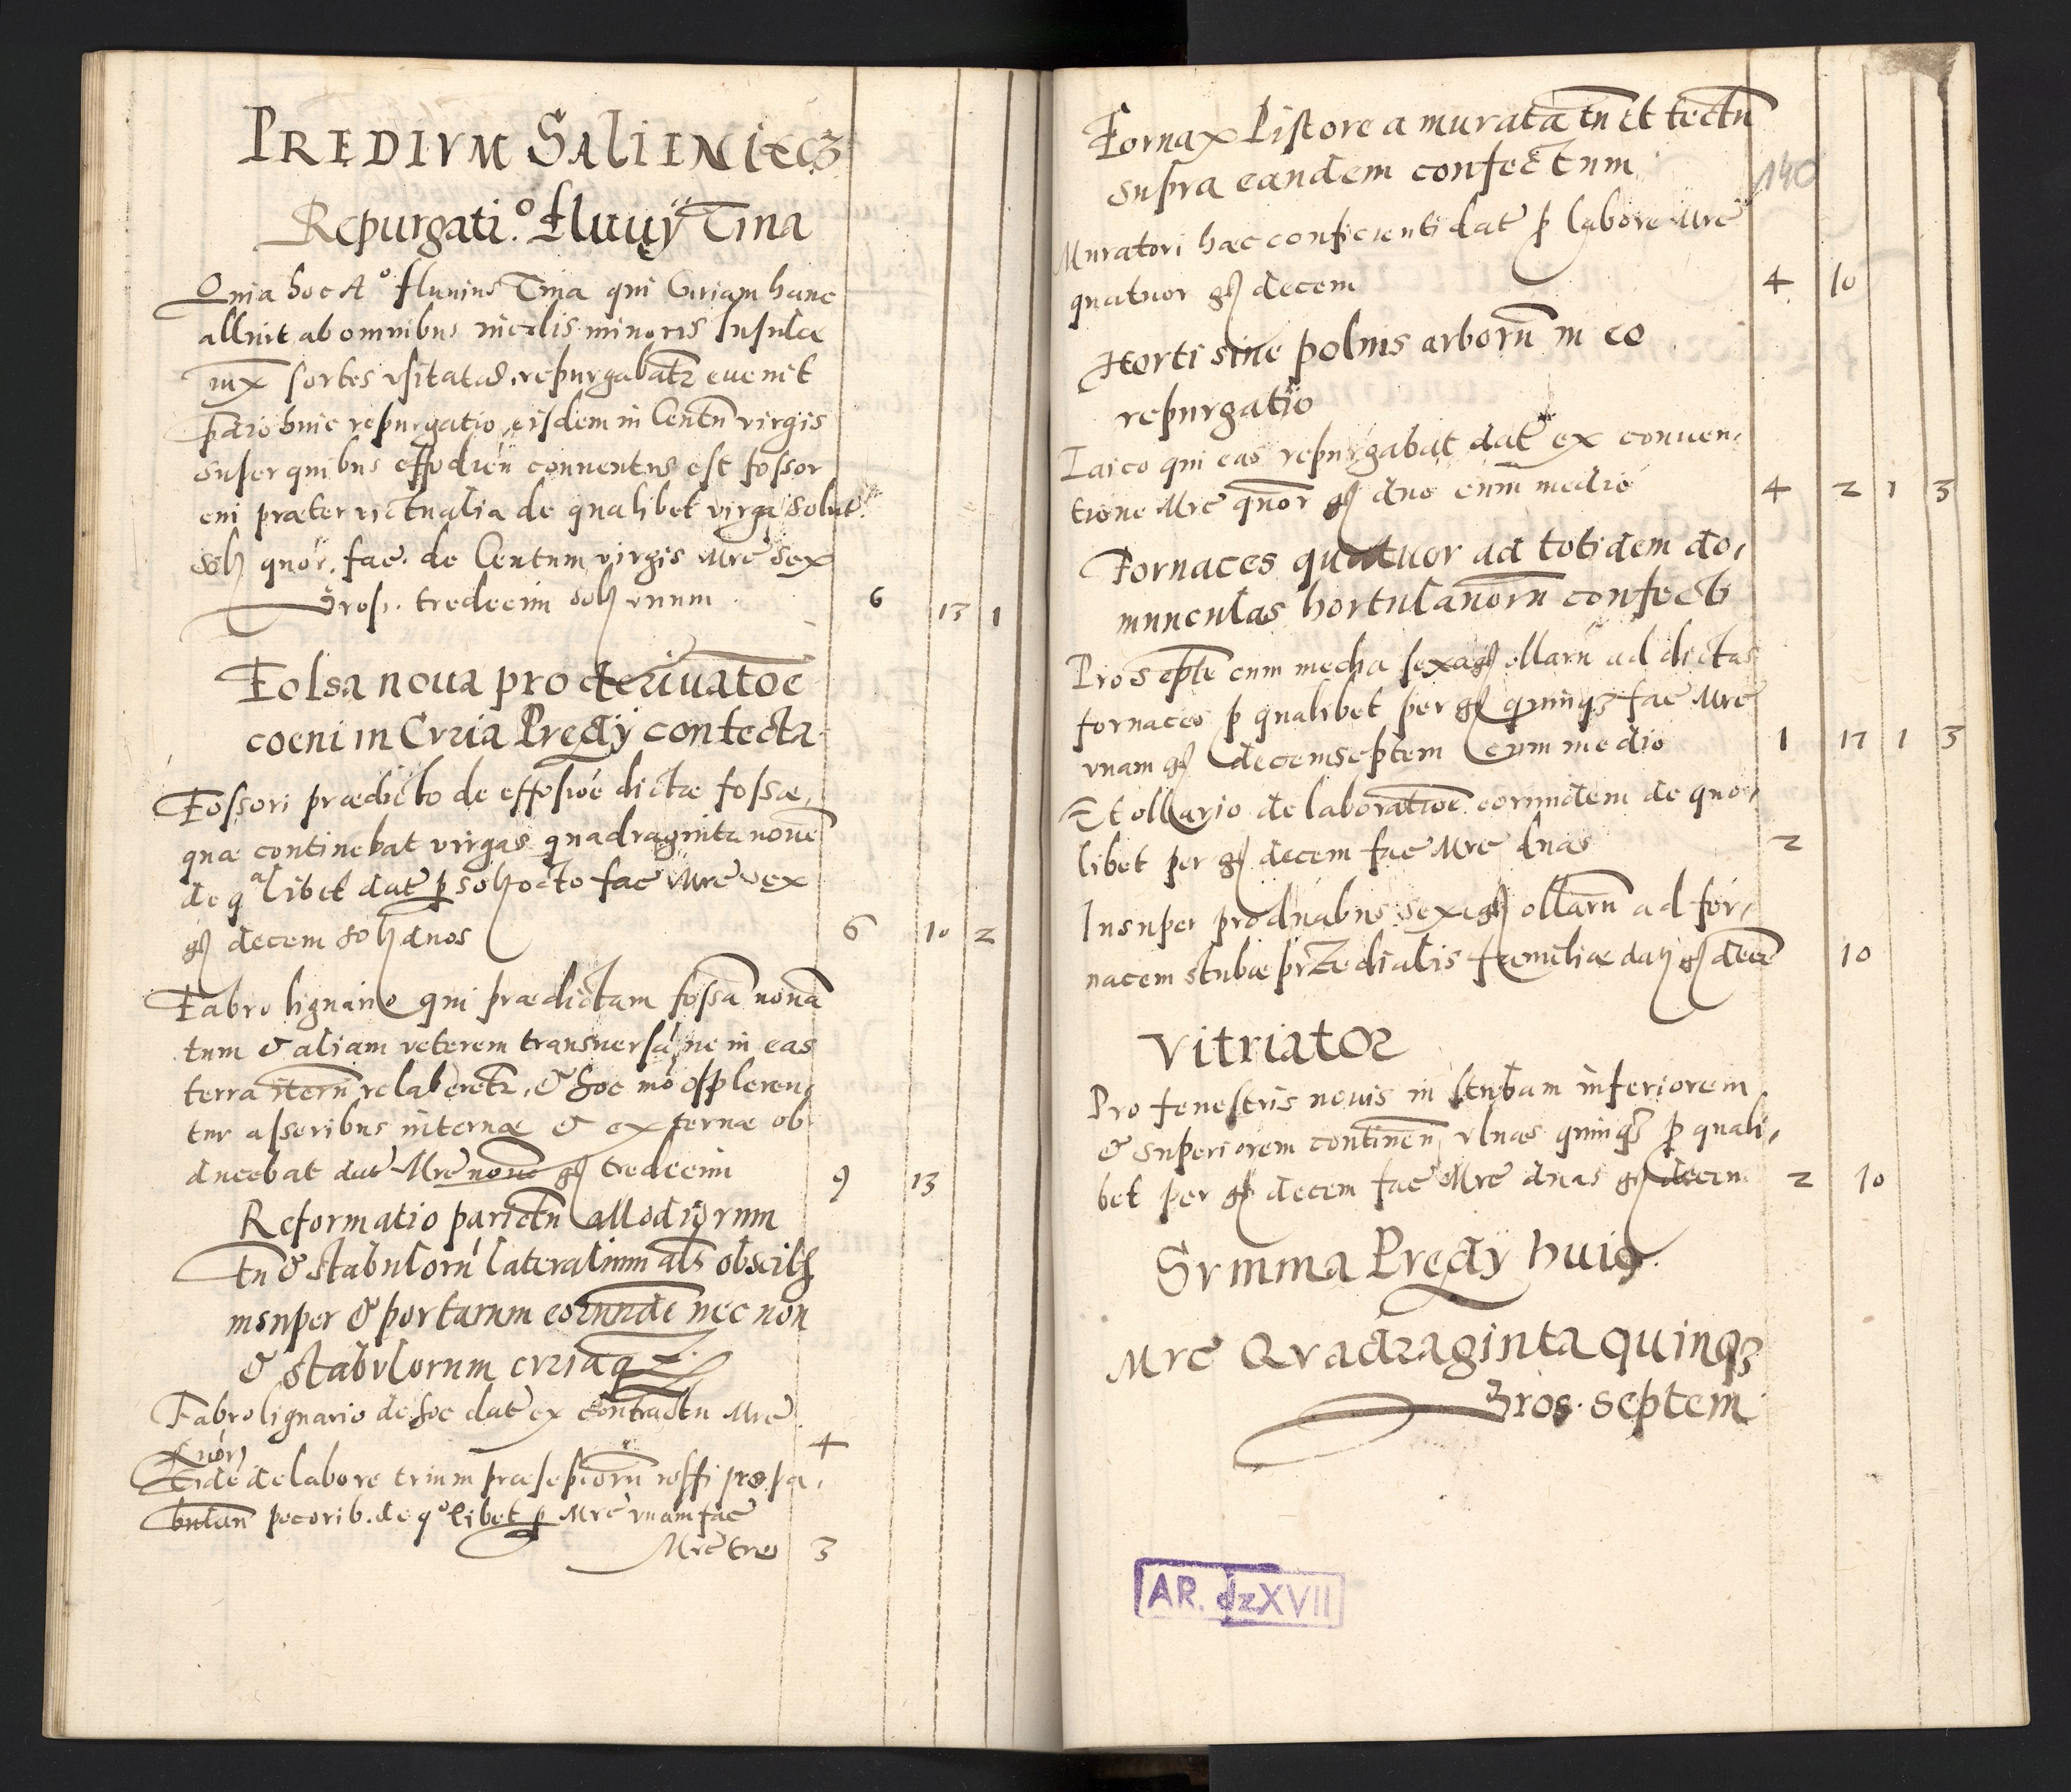 PREDIVM SAliENiecz
Repurgati.o fluuÿ Tina
Quia hoc Ao fluuius Tina qui Curiam hanc
alluit ab omnibus incolis minoris Insulae
iux sortes vsitatas repurgabatr euenit
pdio huic repurgatio eisdem in Centū virgis
super quibus effodień conuentus est fossor
cui praeter victualia de qualibet virga solut
sol quór. fac. de Centum virgis Mrc sex
Gros. tredecim sol vnum 6 13 1
Fossa noua pro deriuatoe
coeni in Curia Predÿ confecta
Fossori praedicto de effosioē dictae fossae,
quae continebat virgas quadraginta nouē
de qalibet dat p sol octo fac Mrc sex
gs decem sol duos 6 10 2
Fabro lignario qui praedictam fossā nouā
tum & aliam veterem transuersā, ne in eas
terra iterū relaberetr, & hoc mō opleren,
tur asseribus internae & externae ob
ducebat dat Mrc nouē gs tredecim 9 13
Reformatio parietū allodiorum
tū & stabulorū lateralium als obscilh
insuper & portarum eorundē nec non
& stabvlorum cvriaq
Fabro lignario de hoc dat ex contractu Mrc
Quór 4
Eidē de labore trium praesepiorū
bulan pecorib. de qolibet p Mrc vnam fac
Mrc tres 3
Fornax Pistorea murata tū et tectū
supra eandem confectum
140
Muratori haec conficienti dat p labore Mrc
quatuor gs decem 4 10
Horti siue polnis arborū in eo
repurgatio
Laico qui eas repurgabat dat ex conuen,
tione Mrc quōr gs duo cum medio 4 2 1 3
Fornaces quatuor ad totidem do,
munculas hortulanorū confecti
Pro septē cum media sexags ollarū ad dictas
fornaces p qualibet per gs quinqz fac Mrc
vnam gs decemseptem cum medio 1 17 1 3
Et ollario de laboratioē earundem de quo,
libet per gs decem fac Mrc duas 2
Insuper pro duabus sexags ollarū ad for,
nacem stubae praedialis familiae dat gs decē 10
Vitriator
Pro fenestris nouis in stubam inferiorem
& superiorem continen vlnas quinqz p quali,
bet per gs decem fac Mrc duas gs decem 2 10
Svmma Predÿ huius.
Mrc Qvadraginta quinqz
Gros. septem
AR. dzXVII